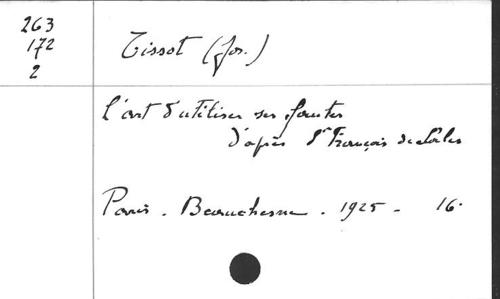 263
172
2
Tissot (Jos.)
L'art d'utiliser ses fautes
d'après St François de Sales
Paris. Beauchesne. 1925 - 16°